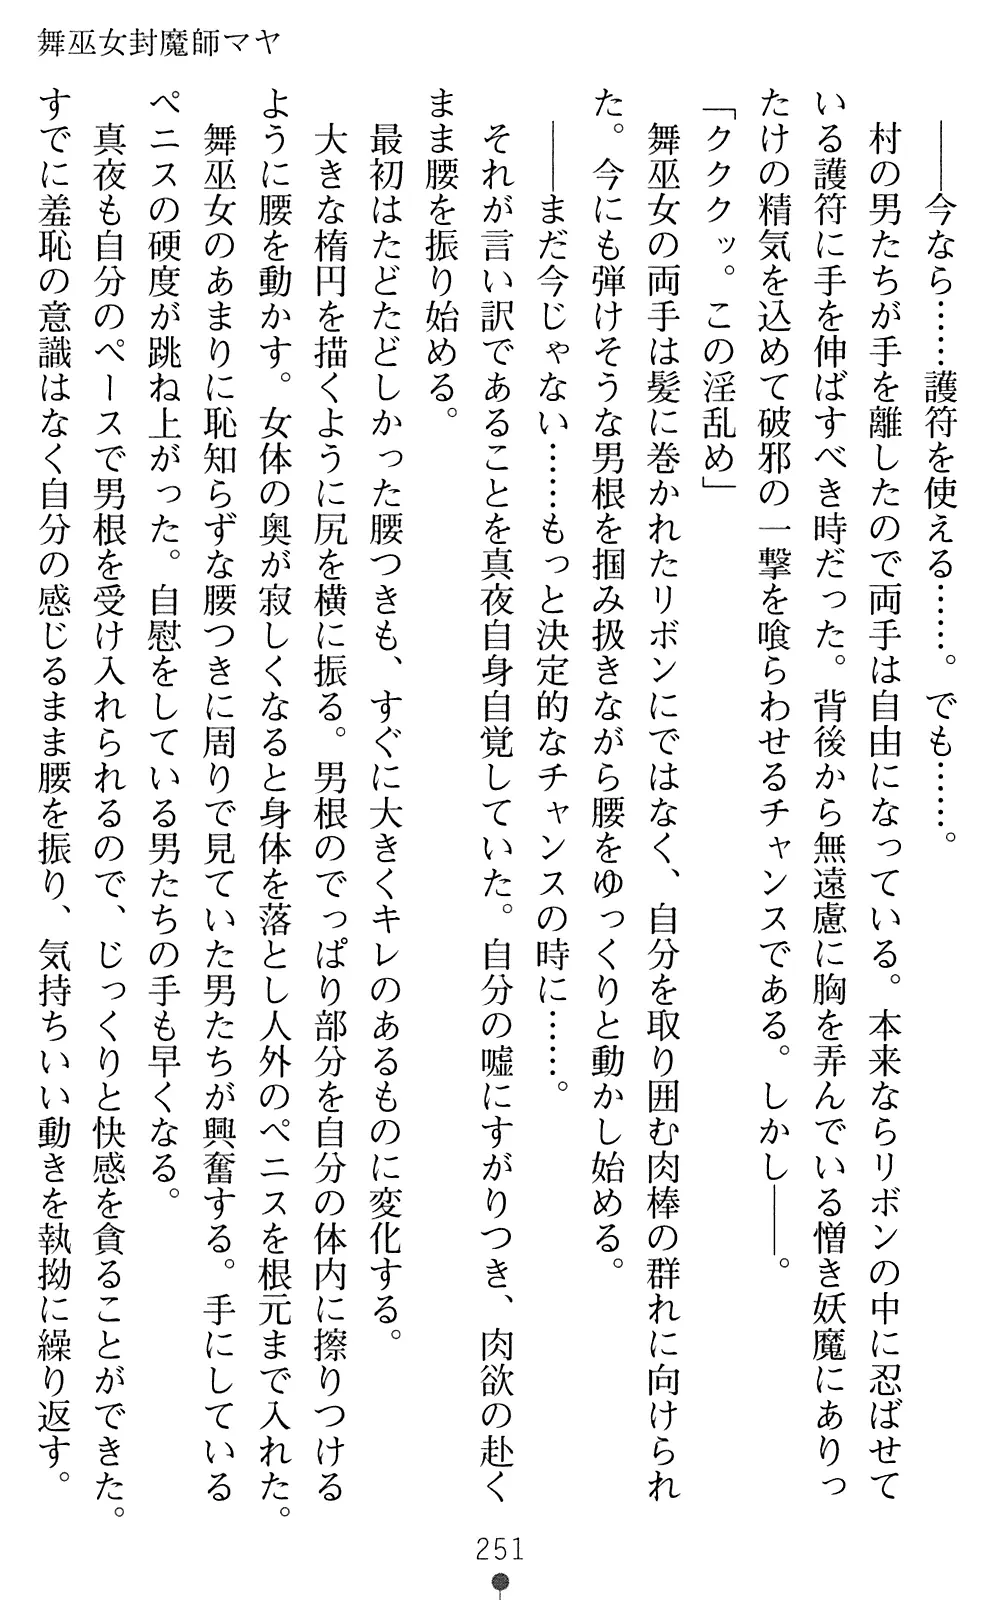 舞巫女封魔師マヤ
――今なら……護符を使える……。でも……。
村の男たちが手を離したので両手は自由になっている。本来ならリボンの中に忍ばせて
いる護符に手を伸ばすべき時だった。背後から無遠慮に胸を弄んでいる憎き妖魔にありっ
たけの精気を込めて破邪の一撃を喰らわせるチャンスである。しかし――。
「クククッ。この淫乱め」
舞巫女の両手は髪に巻かれたリボンにではなく、自分を取り囲む肉棒の群れに向けられ
た。今にも弾けそうな男根を掴み扱きながら腰をゆっくりと動かし始める。
――まだ今じゃない……もっと決定的なチャンスの時に……。
それが言い訳であることを真夜自身自覚していた。自分の嘘にすがりつき、肉欲の赴く
まま腰を振り始める。
最初はたどたどしかった腰つきも、すぐに大きくキレのあるものに変化する。
大きな楕円を描くように尻を横に振る。男根のでっぱり部分を自分の体内に擦りつける
ように腰を動かす。女体の奥が寂しくなると身体を落とし人外のペニスを根元まで入れた。
舞巫女のあまりに恥知らずな腰つきに周りで見ていた男たちが興奮する。手にしている
ペニスの硬度が跳ね上がった。自慰をしている男たちの手も早くなる。
真夜も自分のペースで男根を受け入れられるので、じっくりと快感を貪ることができた。
すでに羞恥の意識はなく自分の感じるまま腰を振り、気持ちいい動きを執拗に繰り返す。
251